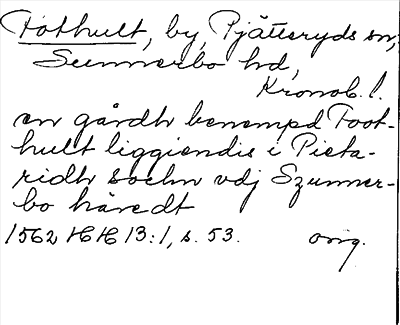 Fothult, by, Pjätteryds sn,
Sunnerbo hd,
Kronob. l.
en gårdh benempd Foot-
hult liggiendis i Pieta-
ridh sochn vdj Szunner-
bo häredt
1562 HH 13:1, s. 53. orig.